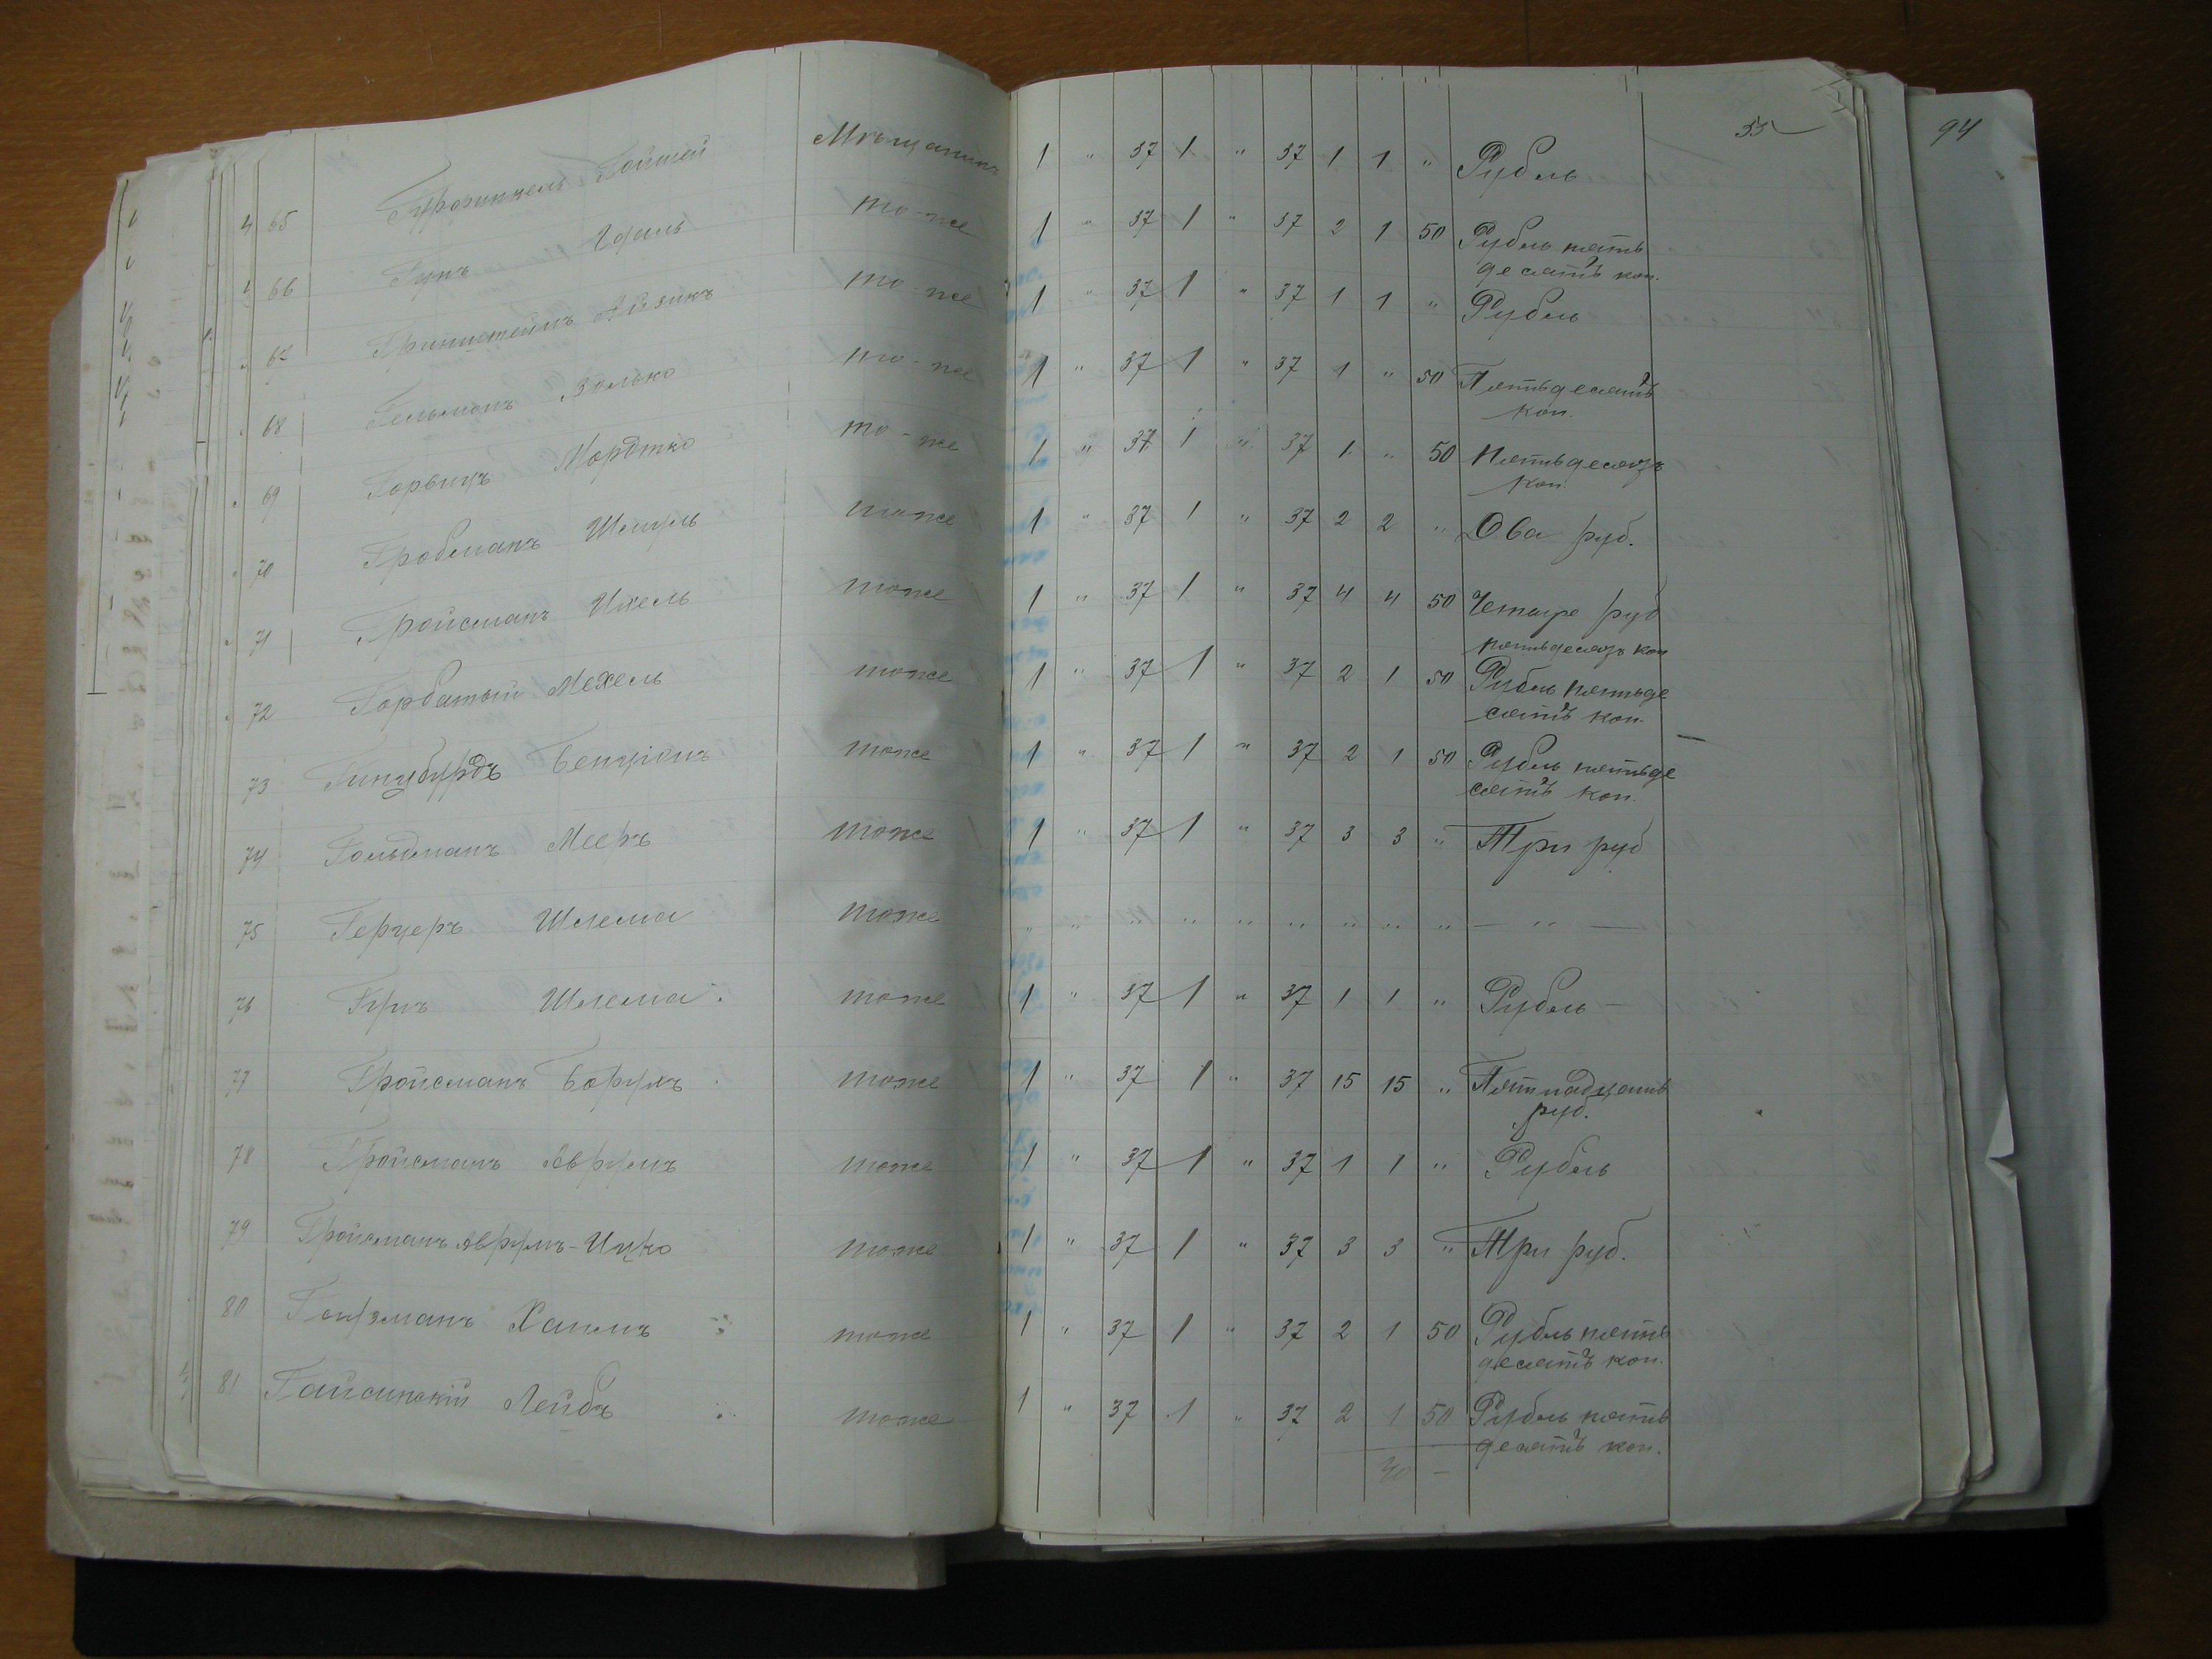 55 94
4 65 Гурфинкель Гойшей Мѣщанинъ 1 " 37 1 " 37 1 1 " Рубль
66 Гукъ Идель то-же 1 " 37 1 " 37 2 1 50 Рубль пять
десятъ коп.
67 Гринштейнъ Айзикъ то-же 1 " 37 1 " 37 1 1 " Рубль
68 Гельманъ Золько то-же 1 " 37 1 " 37 1 " 50 Пятьдесятъ
коп.
69 Горвицъ Мордко то-же 1 " 37 1 " 37 1 " 50 Пятьдесятъ
коп.
70 Гробманъ Шмуль тоже 1 " 37 1 " 37 2 2 " Два руб.
71 Гройсманъ Ихель тоже 1 " 37 1 " 37 4 4 50 Четыре руб
пятьдесятъ коп
72 Горбатый Мехель тоже 1 " 37 1 " 37 2 1 50 Рубль пятьде
сятъ коп.
73 Гинцбурдъ Бенціонъ тоже 1 " 37 1 " 37 2 1 50 Рубль пятьде
сятъ коп.
74 Гольдманъ Мееръ тоже 1 " 37 1 " 37 3 3 " Три руб
75 Герцеръ Шлема тоже " " " " " " " " " — " —
76 Гукъ Шлема тоже 1 " 37 1 " 37 1 1 " Рубль —
77 Гройсманъ Борухъ тоже 1 " 37 1 " 37 15 15 " Пятнадцать
руб.
78 Гройсманъ Аврумъ тоже 1 " 37 1 " 37 1 1 " Рубль
79 Гройсманъ Аврумъ-Ицко тоже 1 " 37 1 " 37 3 3 " Три руб.
80 Гоузманъ Хаимъ тоже 1 " 37 1 " 37 2 1 50 Рубль пять
десятъ коп.
81 Гайсинскій Лейбъ тоже 1 " 37 1 " 37 2 1 50 Рубль пять
десятъ коп.
40 —